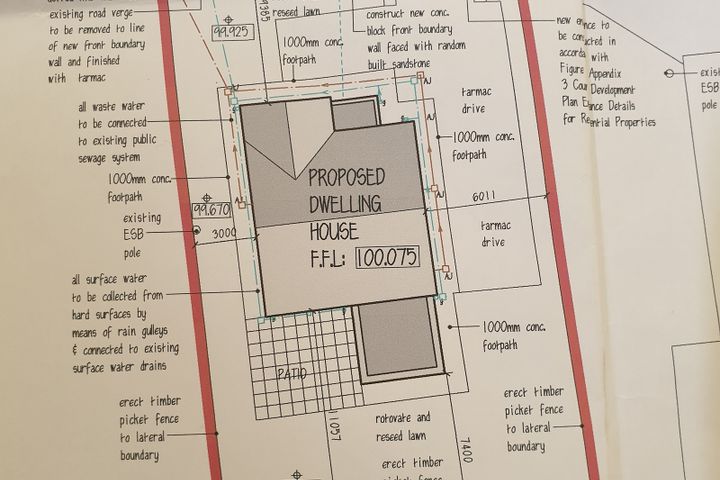 existing road verge
to be removed to line
of new front boundary
wall and finished
with tarmac
99.925
9385
reseed lawn
1000mm conc.
footpath
construct new conc.
block front boundary
wall faced with random
built sandstone
tarmac
drive
all waste water
to be connected
to existing public
sewage system
1000mm conc.
footpath
1000mm conc.
footpath
99.670
existing
ESB
pole
3000
6011
tarmac
drive
PROPOSED
DWELLING
HOUSE
F.F.L: 100.075
all surface water
to be collected from
hard surfaces by
means of rain gulleys
& connected to existing
surface water drains
1000mm conc.
footpath
PATIO
erect timber
picket fence
to lateral
boundary
11057
rotovate and
reseed lawn
7400
erect timber
erect timber
picket fence
to lateral
boundary
with
Appendix
Development
Details
Properties
Figure
3
Plan
for
ESB
pole
AJ
AJ
AJ
AJ
AJ